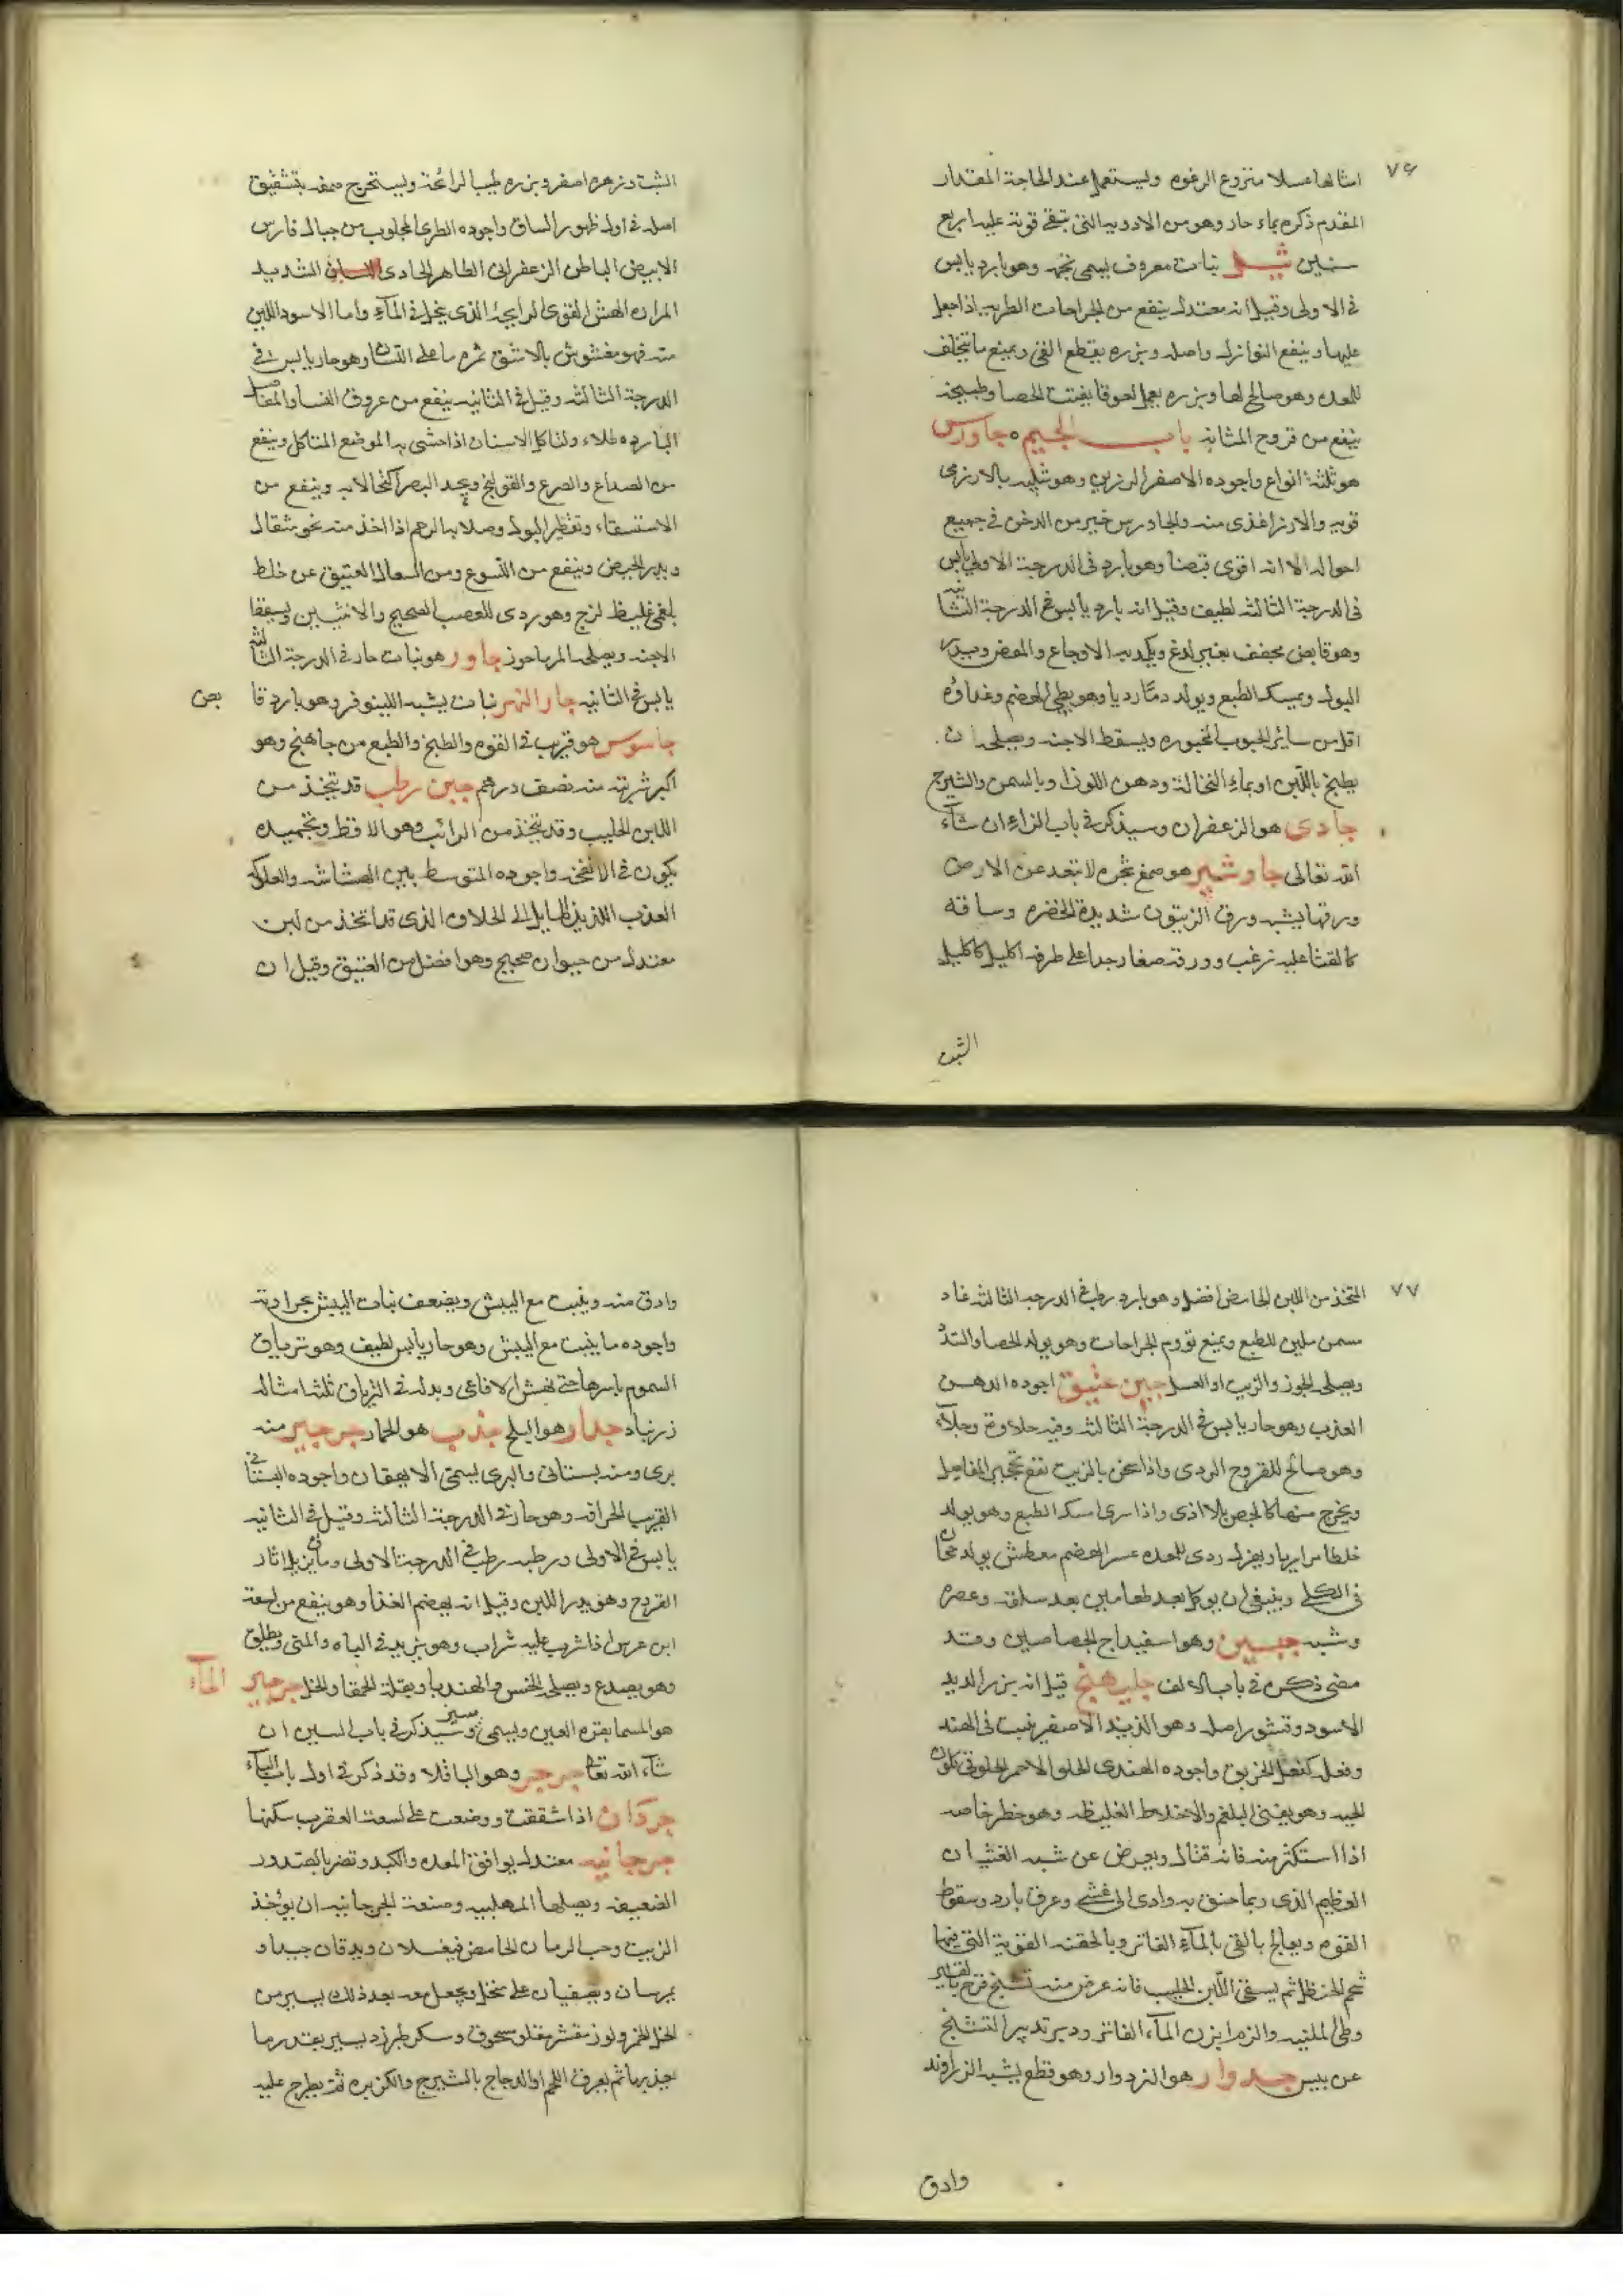 ٧٦
امثالها عسلا منزوع الرغوه ويستعمل عند الحاجة المقدار
المقدم ذكره بماء حار وهو من الادويه التى تبقى قوته عليه اربع
سنين ثيل نبات معروف يسمى نجم وهو بارد يابس
فى الاولى وقيل انه معتدل ينفع من الجراحات الطريه اذا جعل
عليها وينفع النوازل واصله وبزره يقطع القى ويمنع ما يتحلف
للمعده وهو صالح لها وبزره يعمل لعوقا يفتت الحصا وطبيخه
ينفع من قروح المثانه باب الجيم جاورس
هو ثلثة انواع واجوده الاصفر الرزين وهو شبيه بالارز فى
قوته والارز اغذى منه والجاورس خير من الدخن فى جميع
احواله الا انه اقوى قبضا وهو بارد فى الدرجة الاولى يابس
فى الدرجة الثالثه لطيف وقيل انه بارد يابس فى الدرجة الثانيه
وهو قابض مجفف بغير لدغ ويكمد به الاوجاع والمغص ويدر
البول ويمسك الطبع ويولد دمًا رديا وهو بطى الهضم وغذاؤه
اقل من سائر الحبوب المخبوزه ويسقط الاجنه ويصلحه ان
يطبخ باللبن او بماء النخالة ودهن اللوز او بالسمن والشيرج
جادى هو الزعفران وسيذكر فى باب الزاء ان شآء
الله تعالى جاوشير هو صمغ شجره لا تبعد عن الارض
ورقها يشبه ورق الزيتون شديدة الخضره وساقه
كالقثا عليه زغب وورقه صغار جدا على طرفه اكليل كاكليل
الشبت
الشبت وزهره اصفر وبزره طيب الرائحة ويستخرج صمغه بتشقيق
اصله فى اول ظهور الساق واجوده الطرى المجلوب من جبال فارس
الابيض الباطن الزعفرانى الظاهر الحادى اللسان الشديد
المراره الهش القوى الرايحه الذى ينحل فى المآء واما الاسود اللين
منه فهو مغشوش بالاشق ثمره ما على الساق وهو حار يابس فى
الدرجة الثالثه وقيل فى الثانيه ينفع من عروق النسا والمفاصل
البارده طلاء ولتاكل الاسنان اذا حشى به الموضع المتاكل وينفع
من الصداع والصرع والقولنج ويحد البصر اكتحالا به وينفع من
الاستسقاء وتقطير البول وصلابه الرحم اذا اخذ منه نحو مثقال
ويدر الحيض وينفع من اللسوع ومن السعال العتيق عن خلط
بلغمى غليظ لزج وهو ردى للعصب الصحيح والانثيين ويسقط
الاجنه ويصلحه المرماحوز جاور هو نبات حار فى الدرجة الثالثه
يابس فى الثانيه جار النهر نبات يشبه اللينوفر وهو بارد قابض
جاسوس هو قريب فى القوه والطبخ والطبع من جاهنج وهو
اكبر شربته منه نصف درهم جبن رطب قد يتخذ من
اللبن الحليب وقد يتخذ من الرائب وهو الاقط وتجميده
يكون فى الانفحه واجوده المتوسط بين الهشاشه والعلوكه
العذب اللذيذ المايل الى الحلاوه الذى قد اتخذ من لبن
معتدل من حيوان صحيح وهو افضل من العتيق وقيل ان
٧٧
المتخذ من اللبن الحامض افضل وهو بارد رطب فى الدرجه الثالثه غاد
مسمن ملين للطبع ويمنع تورم الجراحات وهو يولد الحصا والسدد
ويصلحه الجوز والزيت او العسل جبن عتيق اجوده الدهن
العذب وهو حار يابس فى الدرجة الثالثه وفيه حلاوة وجلآء
وهو صالح للقروح الردى واذا عجن بالزيت نفع تحجير المفاصل
ويخرج منها كالجص بلا اذى واذا شوى امسك الطبع وهو يولد
خلطا مراريا ويهزل ردى للمعده عسر الهضم معطش يولد حجارة
فى الكلى وينبغى ان يوكل بعد طعامين بعد سلقه وعصره
وشيه جبسين وهو اسفيداج الجصاصين وقد
مضى ذكره فى باب الالف جلبهنج قيل انه بزر الدند
الاسود وقشور اصله وهو الذيند الاصفر ينبت فى الهند
وفعله كفعل الخربق واجوده الهندى الحلو الاحمر الحلوقى
الجيد وهو يفنى البلغم والاخلاط الغليظه وهو خطر خاصه
اذا استكثر منه فانه قتال ويعرض عن شبه الغثيان
العظيم الذى ربما خنق به وادى الى غشى وعرق بارد وسقوط
القوه ويعالج بالقى بالمآء الفاتر وبالحقنه القوية التى فيها
شحم الحنظل ثم يسقى اللبن الحليب فانه عرض منه تشنج
وطلى الملينه والزم ابزن المآء الفاتر ودبر تدبير التشنج
عن يبس جدوار هو الزدوار وهو قطع يشبه الزراوند
وادق
وادق منه وينبت مع البيش ويضعف نبات البيش بجوارته
واجوده ما ينبت مع البيش وهو حار يابس لطيف وهو ترياق
السموم باسرها حتى نهش الافاعى وبدله فى الترياق ثلثة امثاله
زرنباد جدار هو البلح جذب هو الجمار جرجير منه
برى ومنه بستانى والبرى يسمى الايهقان واجوده البستانى
القريب الحرافه وهو حار فى الدرجة الثالثه وقيل فى الثانيه
يابس فى الاولى ورطبه رطب فى الدرجة الاولى وماؤه يزيل اثار
القروح وهو يدر اللبن وقيل انه يهضم الغذا وهو ينفع من لسعة
ابن عرس اذا شرب عليه شراب وهو يزيد فى الباه والمنى ويطلق
وهو يصدع ويصلحه الخس والهندبا وبقلة الحمقا والخل جرجير المآء
هو المسما بقرة العين ويسمى سير وسيذكر فى باب السين ان
شآء الله تعالى جرجر وهو الباقلا وقد ذكر فى اول باب البآء
جرذان اذا شققت ووضعت على لسعة العقرب سكنها
جرجانيه معتدله يوافق المعده والكبد وتضر بالصدور
الضعيفه ويصلحها المهلبيه وصنعة الجرجانيه ان يؤخذ
الزبيب وحب الرمان الحامض فيغسلان ويدقان جيدا و
يمرسان ويصفيان على منخل ويجعل معه بعد ذلك يسير من
الخل الخمر ولوز مقشر مغلى مسحوق وسكر طبرزد يسير بقدر ما
يجذبها ثم يعرق اللحم او الدجاج بالشيرج والكزبره ثم يطرح عليه